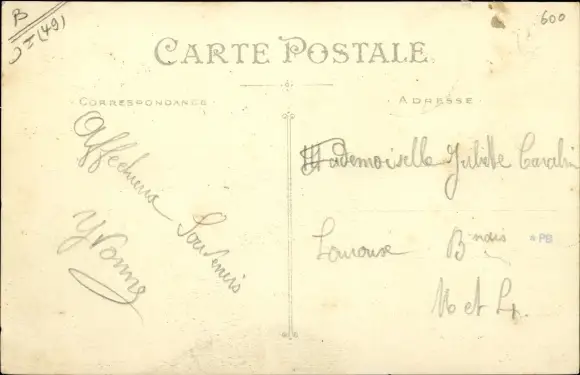 B
I (49)
600
CARTE POSTALE
CORRESPONDANCE
ADRESSE
Affectueux
Souvenirs
Yvonne
Mademoiselle Juliette Cavalin
Bnais
*PB
M et L.